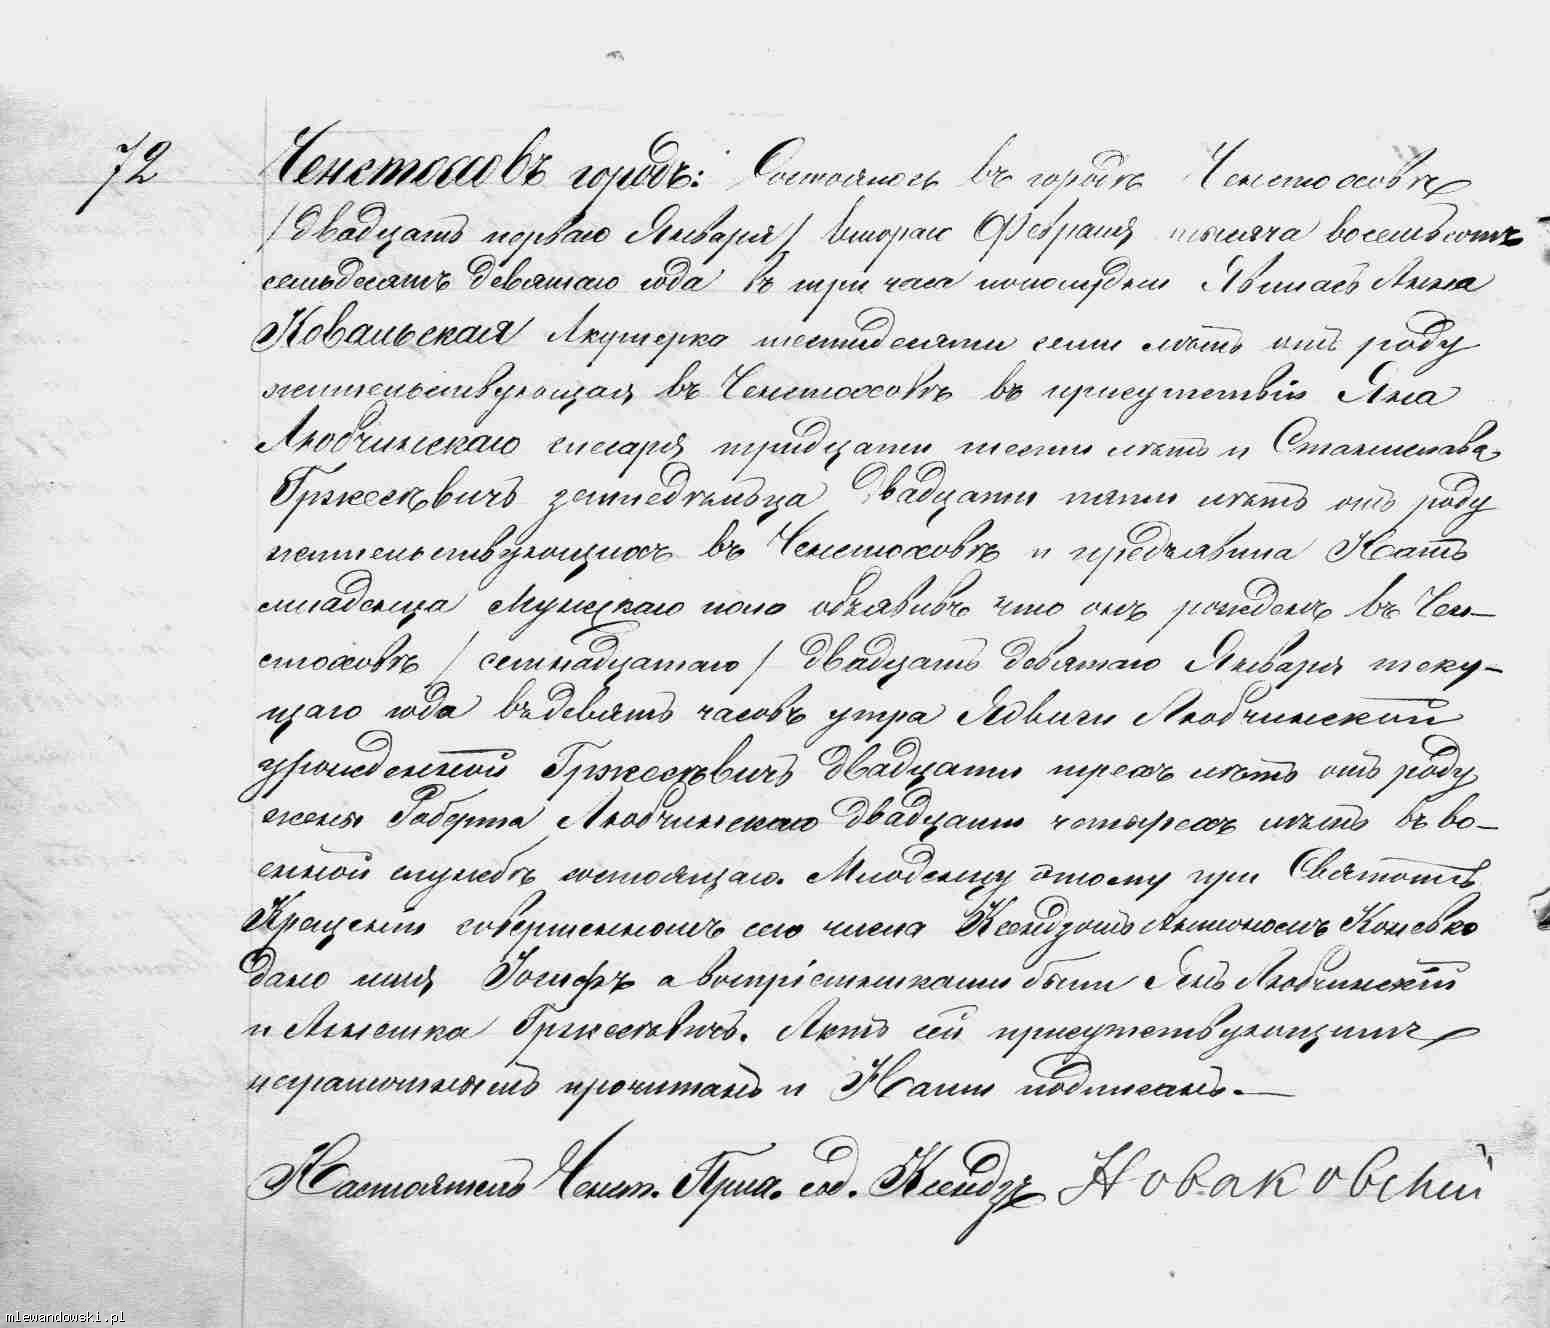 72
Ченстоховъ городъ: Состоялось въ городѣ Ченстоховѣ
/двадцать перваго Января/ втораго Февраля тысяча восемьсотъ
семьдесятъ девятаго года въ три часа пополудни Явилась Анна
Ковальская Акушерка шестидесяти семи лѣтъ отъ роду
жительствующая въ Ченстоховѣ въ присутствіи Яна
Любчинскаго слесаря тридцати шести лѣтъ и Станислава
Гржесѣвичъ земледѣльца двадцати пяти лѣтъ отъ роду
жительствующихъ въ Ченстоховѣ и предъявила Намъ
младенца Мужескаго пола объявивъ что онъ рожденъ въ Чен–
стоховѣ /семнадцатаго/ двадцать девятаго Января теку–
щаго года въ девять часовъ утра Ядвиги Любчинской
урожденной Гржесѣвичъ двадцати трехъ лѣтъ отъ роду
жены Роберта Любчинскаго двадцати четырехъ лѣтъ въ во–
енной службѣ состоящаго. Младенцу этому при Святомъ
Крещеніи совершенномъ сего числа Ксендзомъ Антономъ
дано имя Іосифъ а воспріемниками были Янъ Любчинскій
и Агнешка Гржесѣвичъ. Актъ сей присутствующимъ
неграмотнымъ прочитанъ и Нами подписанъ.—
Настоятель Ченст. Прих. сод. Ксендзъ Новаковскій
mlewandowski.pl